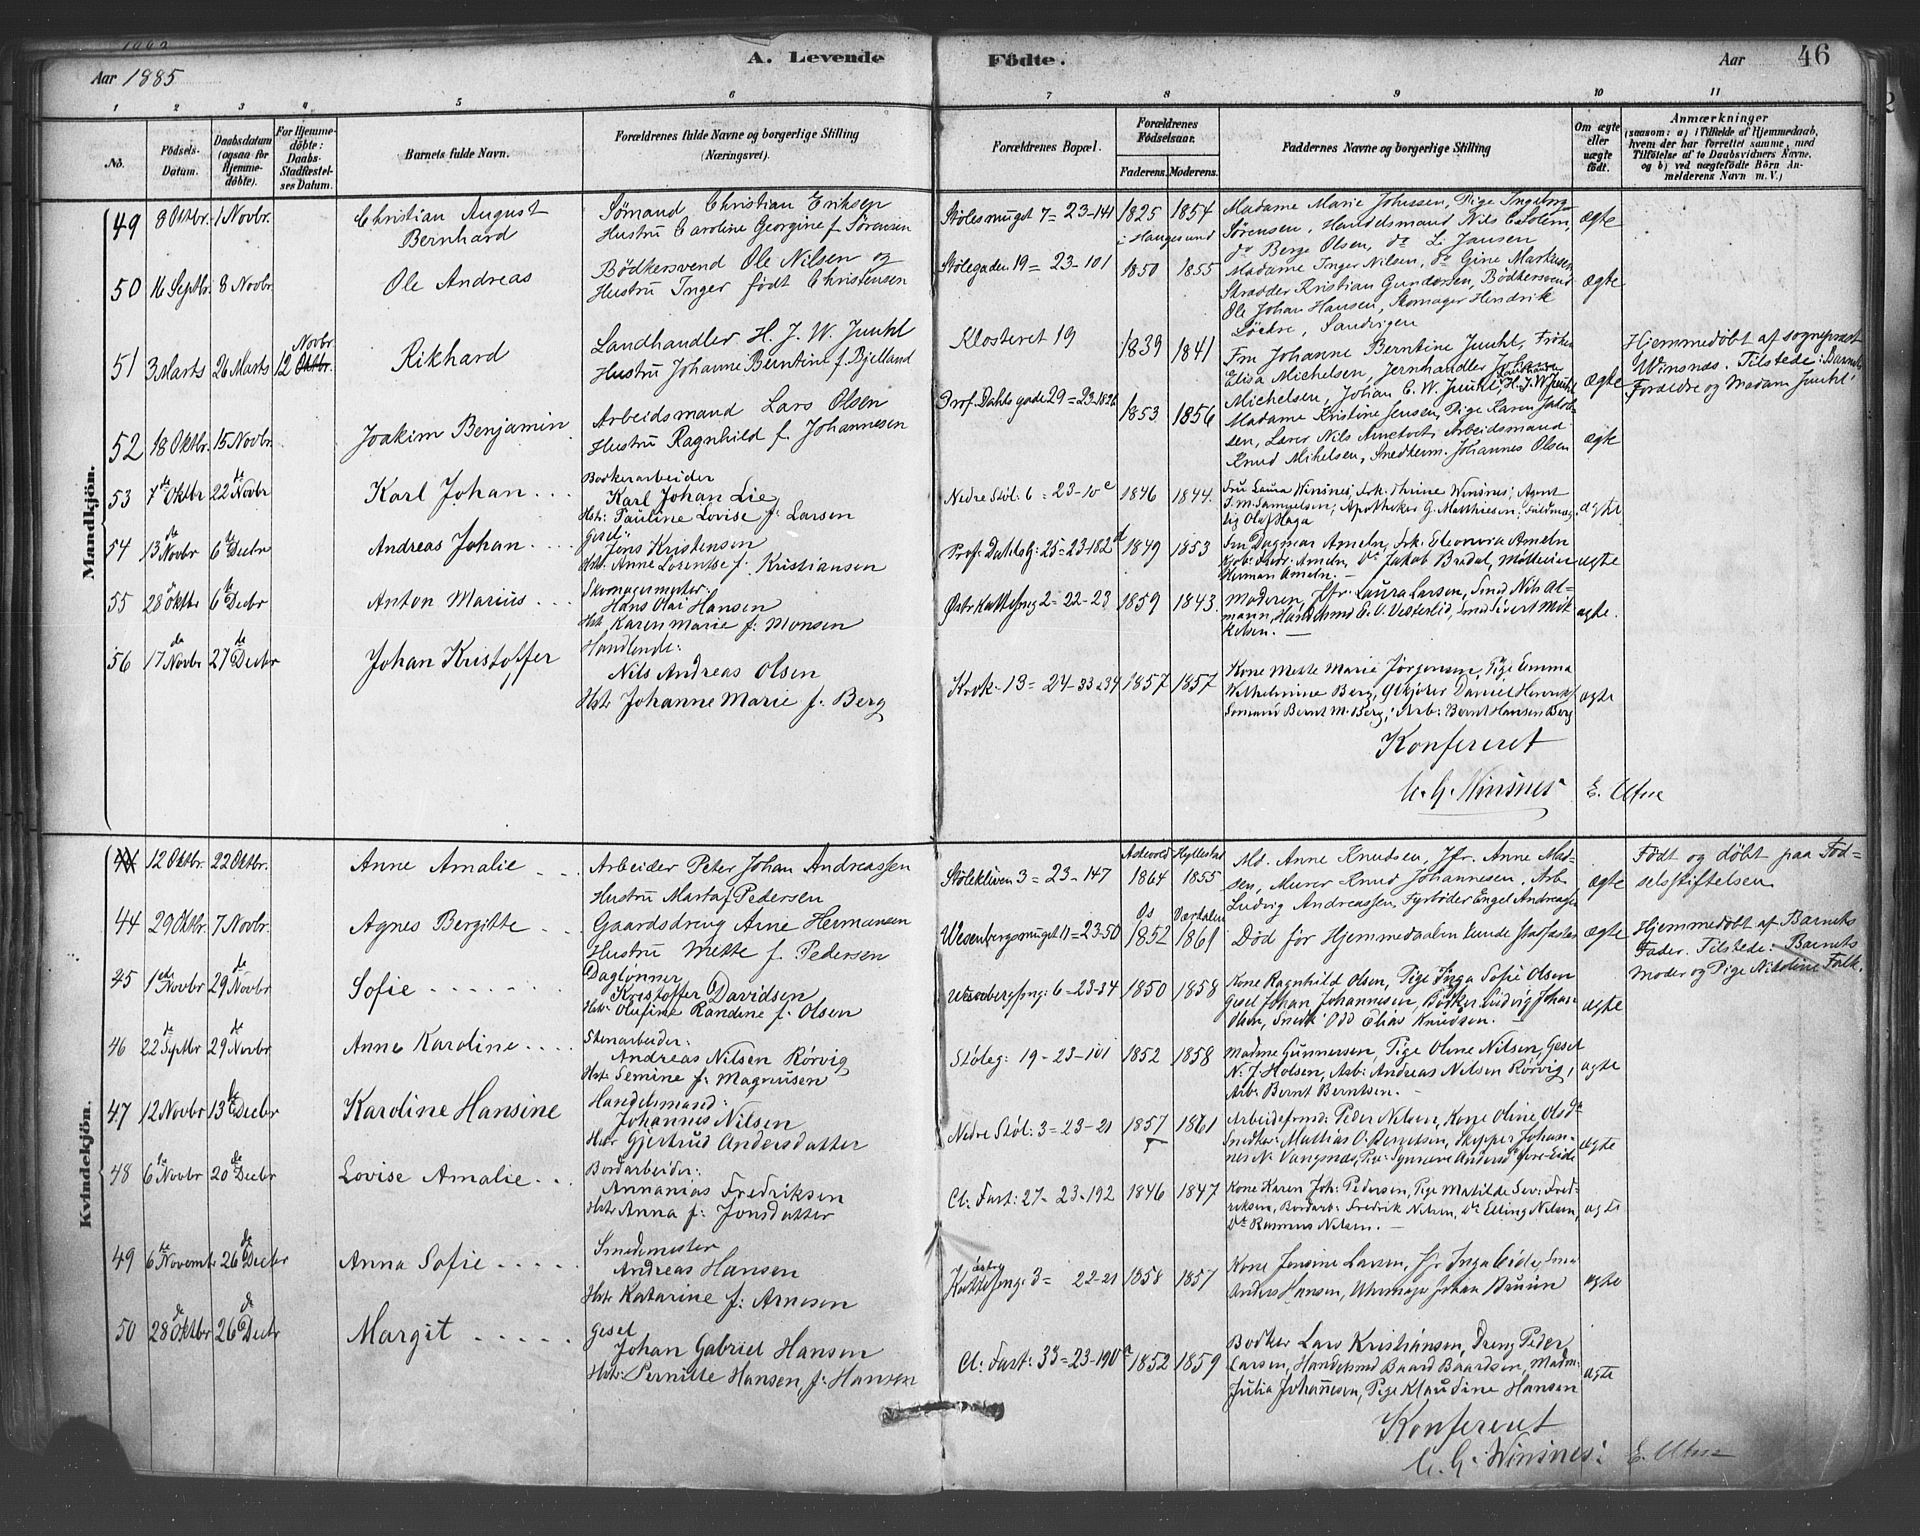 Aar 1885
A. Levende
Födte.
Aar
46
1
2
3
4
5
6
7
8
9
10
11
No.
Födsels-Datum.
Daabsdatum (ogsaa for Hjemmedöbte).
For Hjemmedöbte: Daabs-Stadfæstelses Datum.
Barnets fulde Navn.
Forældrenes fulde Navne og borgerlige Stilling (Næringsvei).
Forældrenes Bopæl.
Forældrenes Födselsaar.
Faderens. Moderens.
Faddernes Navne og borgerlige Stilling
Om ægte eller uægte födt.
Anmærkninger
(saasom: a) i Tilfælde af Hjemmedaab, hvem der har forrettet samme, med Tilföielse af to Daabsvidners Navne, og b) ved uægtefödte Börn Anmelderens Navn m. V.)
Mandkjön.
49 8 Oktbr. 1 Novbr. Christian August Bernhard
Sømand Christian Eriksen
Hustru Caroline Georgine f. Sørensen
Stølesmuget 7 = 23-141 1825 1854
i Haugesund
Madame Marie Johnsen, Pige Ingeborg
Sørensen, Handelsmand Nils
do Berge Olsen, do L. Jansen
ægte
50 16 Septbr. 8 Novbr. Ole Andreas
Bødkersvend Ole Nilsen og
Hustru Inger født Christensen
Stølegaden 19 = 23-101 1850 1855
Madame Inger Nilsen, do Gine Markusen
Skrædder Kristian Gundersen, Bødkersvend
Ole Johan Hansen, Skomager Hendrik
Sandvigen
ægte
51 3 Marts 26 Marts 12 Novbr Rikhard
Landhandler H. J. W. Juuhl
Hustru Johanne Berntine f. Bjelland
Klosteret 19 1839 1841
Fru Johanne Berntine Juuhl, Frøken
Elisa Michelsen, Jernhandler Johan
Michelsen, Johan E. W. Juuhl, H. J. W. Juuhl
ægte
Hjemmedøbt af sognepræst
Winsnæs. Tilstede: Barnets
Forældre og Madam Juuhl.
52 18 Oktbr. 15 Novbr. Joakim Benjamin
Arbeidsmand Lars Olsen
Hustru Ragnhild f. Johannesen
Prof. Dahls gade 29 = 23-182b 1853 1856
Madame Kristine Jensen, Pige Karen Jakob-
sen, Lærer Nils Arbeidsmand
Knud Mikelsen, Snedkerm. Johannes Olsen
ægte
53 7de Oktbr 22de Novbr Karl Johan
Bødkerarbeider
Karl Johan Lie
Hstr: Pauline Lovise f. Larsen
Nedre Støl: 6 = 23-10e 1846 1844.
Fru Laura Winsnes, Frk. Thrine Winsnes, Agent
T. M. Samuelsen, Apotheker G. Matthiesen, Fuldmæg-
tig Olaf Haga
ægte.
54 13de Novbr 6te Decbr Andreas Johan
Gesel:
Jens Kristensen
Hst: Anne Lorentse f. Kristiansen
Prof. Dahls G: 25=23-182d 1849 1853
Fru Dagmar Ameln, Frk. Eleonora Ameln
Ameln, do Jakob Bredal, Møller
Herman Ameln.
ægte
55 28de Oktbr 6te Decbr Anton Marius
Skomagermester:
Hans Olai Hansen
Hst. Karen Marie f: Monsen
Østr. Kattesmg 2 = 22-23 1859 1843.
Moderen, Jfr. Laura Larsen, Smed Nils Al-
mann, Handelsmd E. O. Vesterlid, Smed Sivert Mik-
kelsen.
ægte.
56 17de Novbr 27de Decbr Johan Kristoffer
Handlende:
Nils Andreas Olsen
Hstr Johanne Marie f. Berg
Krok. 13 = 24-33 & 34 1857 1857
Kone Mette Marie Jørgensen, Pige Emma
Wilhelmine Berg, Daniel Henrik
Sømand Bernt M. Berg, Arb: Bernt Hansen Berg
ægte
Konfereret
C. G. Winsnes
E. Utne
Kvindekjön.
12 Oktbr. 22 Oktbr. Anne Amalie
Arbeider Peter Johan Andreassen
Hustru Marta f Pedersen
Stølekleiven 3 = 23-147
Askevold 1864 Hyllestad 1855
Md. Anne Knudsen, Jfr. Anne Mad-
sen, Murer Knud Johannesen, Arb.
Ludvig Andreassen, Fyrbøder Engel Andreasen
ægte
Født og døbt paa Fød-
selsstiftelsen
44 29 Oktbr. 7 Novbr. Agnes Bergitte
Gaardsdreng Arne Hermansen
Hustru Mette f. Pedersen
Wesenbergsmuget 11 = 23-50
Os 1852 Værdalen 1861
Død før Hjemmedaaben kunde stadfæstes
ægte
Hjemmedøbt af Barnets
Fader. Tilstede: Barnets
Moder og Pige Nikoline Falk.
45 1ste Novbr 29de Novbr Sofie
Daglønner
Kristoffer Davidsen
Hstr: Olufine Randine f. Olsen
Wesenbergsmg: 6 = 23-34 1850 1858
Kone Ragnhild Olsen, Pige Inga Sofie Olsen
Gesel Johan Johannesen, Bødker Ludvig Johan
Olsen, Snedk: Odd Elias Knudsen.
ægte
46 22de Septbr 29de Novbr Anne Karoline
Stenarbeider:
Andreas Nilsen Rørvig
Hst: Semine f: Magnusen
Støleg: 19-23-101 1852 1858
Madme Gunnersen, Pige Oline Nilsen, Gesel
N. J. Holsen, Arb: Andreas Nilsen Rørvig,
Arb: Bernt Berntsen.
ægte
47 12 Novbr 13de Decbr Karoline Hansine
Handelsmand:
Johannes Nilsen
Hstr Gjertrud Andersdatter
Nedre Støl: 3 = 23-21 1857 1861
Arbeidsfrmd: Peder Nilsen, Kone Oline Olsdr
Snedker Mathias O. Skipper Johan-
nes N. Vangsnæs,
ægte
48 6te Novbr 20de Decbr Lovise Amalie
Bordarbeider:
Annanias Fredriksen
Hstr Anna f: Jonsdatter
Cl: Fart: 27-23-192 1846 1847
Kone Karen Joh: Pedersen, Pige Matilde Sev: Fred-
riksen, Bordarb: Fredrik Nilsen, do Elling Nilsen,
do Rasmus Nilsen.
ægte
49 6te Novemb. 26de Decbr Anna Sofie
Smedemester
Andreas Hansen
Hstr Katarine f: Arnesen
Østre Kattesmg: 3 = 22-21 1858 1857
Kone Jensine Larsen, Jfr Inga Eide, Smed
Anders Hansen, Uhrmager Johan Bruun
ægte
50 28de Oktbr 26de Decbr Margit
Gesel
Johan Gabriel Hansen
Hstr: Pernille Hansen, f: Hansen
Cl: Fart: 33=23-190a 1852 1859
Bødker Lars Kristiansen, Dreng Peder
Larsen, Handelsmd Baard Baardsen, Madm:
Julia Johannesen, Pige Klaudine Hansen
ægte
Konfereret
C. G. Winsnes:
E. Utne